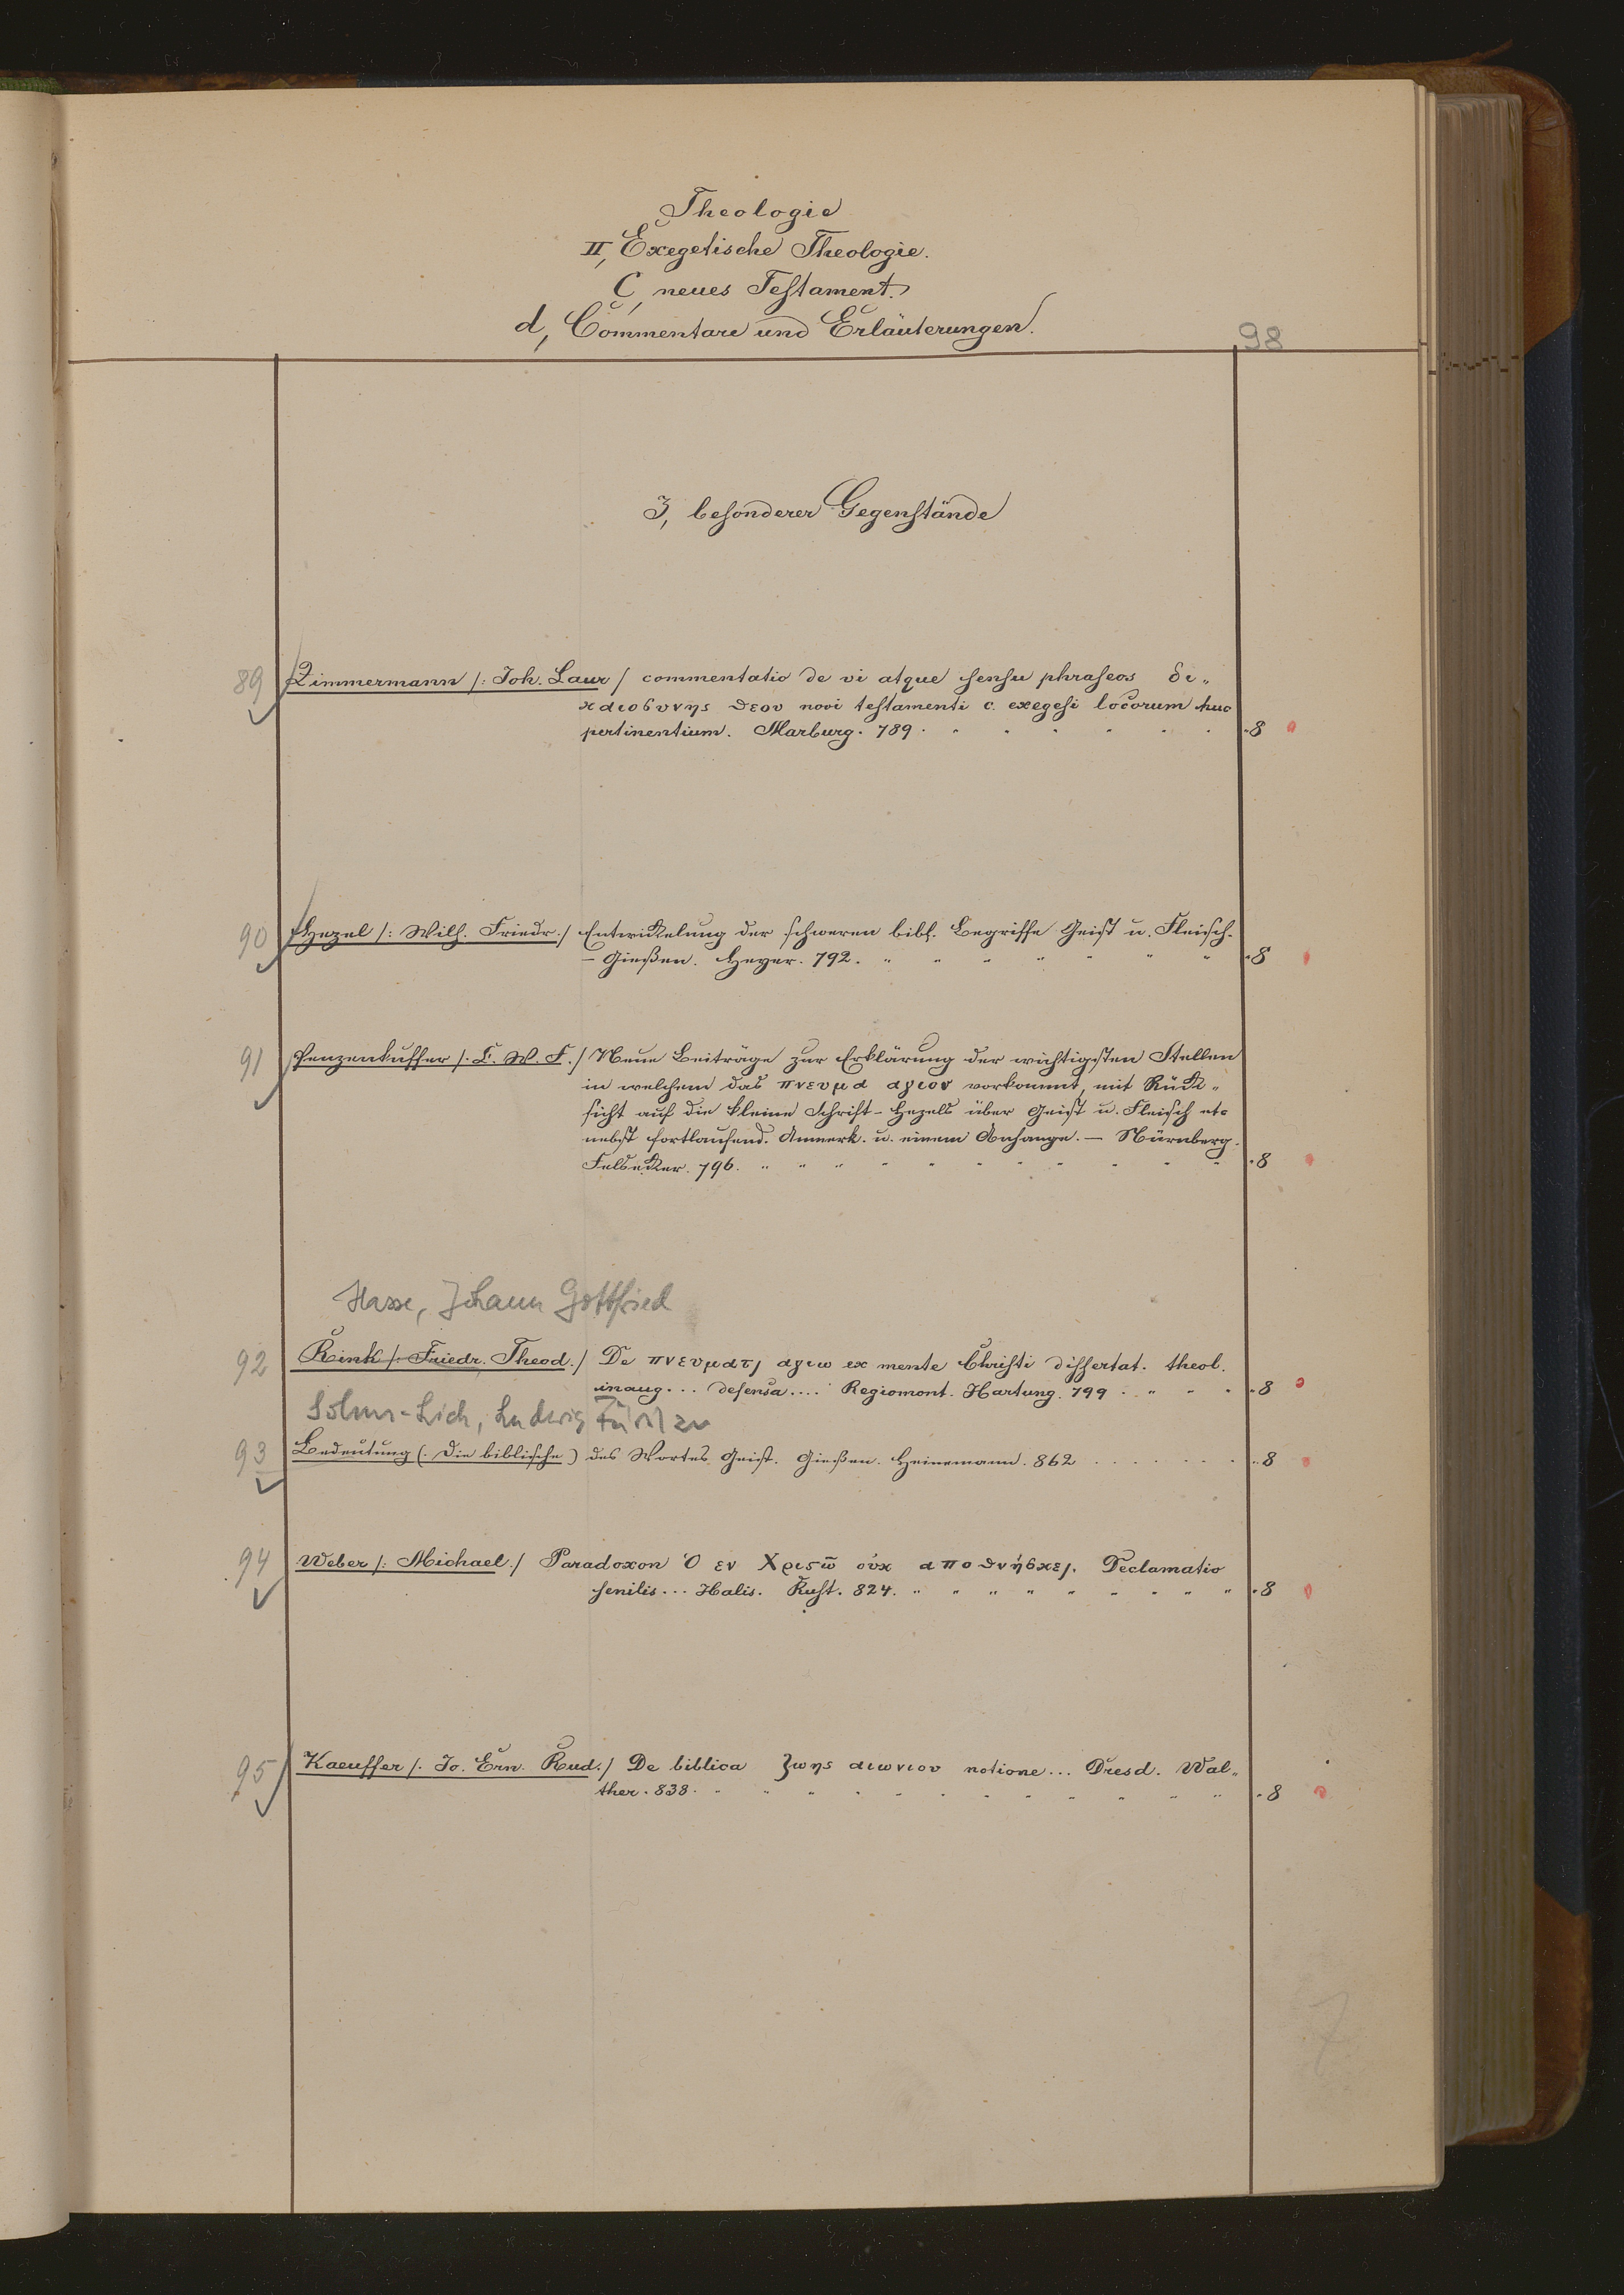 Theologie
II, Exegetische Theologie.
C, neues Testament.
d, Commentare und Erläuterungen.
98
3, besonderer Gegenstände
89 Zimmermann /: Joh. Laur / commentatio de vi atque sensu phraseos δι„
καιοσυνης θεου novi testamenti c. exegesi locorum huc
pertinentium. Marburg. 789. 8
90 Hezel /: Wilh. Friedr./ Entwickelung der schweren bibl. Begriffe Geist u. Fleisch.
– Gießen. Heyer. 792. 8
91 Penzenkuffer /: C. W. F./ Neue Beiträge zur Erklärung der wichtigsten Stellen
in welchem das πνευμα αγιον vorkommt, mit Rück„
sicht auf die kleine Schrift – Hezels über Geist u. Fleisch etc
nebst fortlaufend. Anmerk. u. einem Anhange. – Nürnberg.
Felsecker. 796. 8
Hasse, Johann Gottfried
92 Rink /: Friedr. Theod./ De πνευματι αγιω ex mente Christi dissertat. theol.
inaug... defensa.... Regiomont. Hartung. 799. 8
Solms-Lich, Ludwig Fürst zu
93 Bedeutung (: die biblische) des Wortes Geist. Gießen. Heinemann. 862 8
94 Weber /: Michael./ Paradoxon Ὁ εν Χριϛω̃ ούκ αποθνήσκει. Declamatio
senilis... Halis. Rust. 824. 8
95 Kaeuffer /: Jo. Ern. Rud./ De biblica ζωης αιωνιου notione... Dresd. Wal„
ther. 838. 8
7